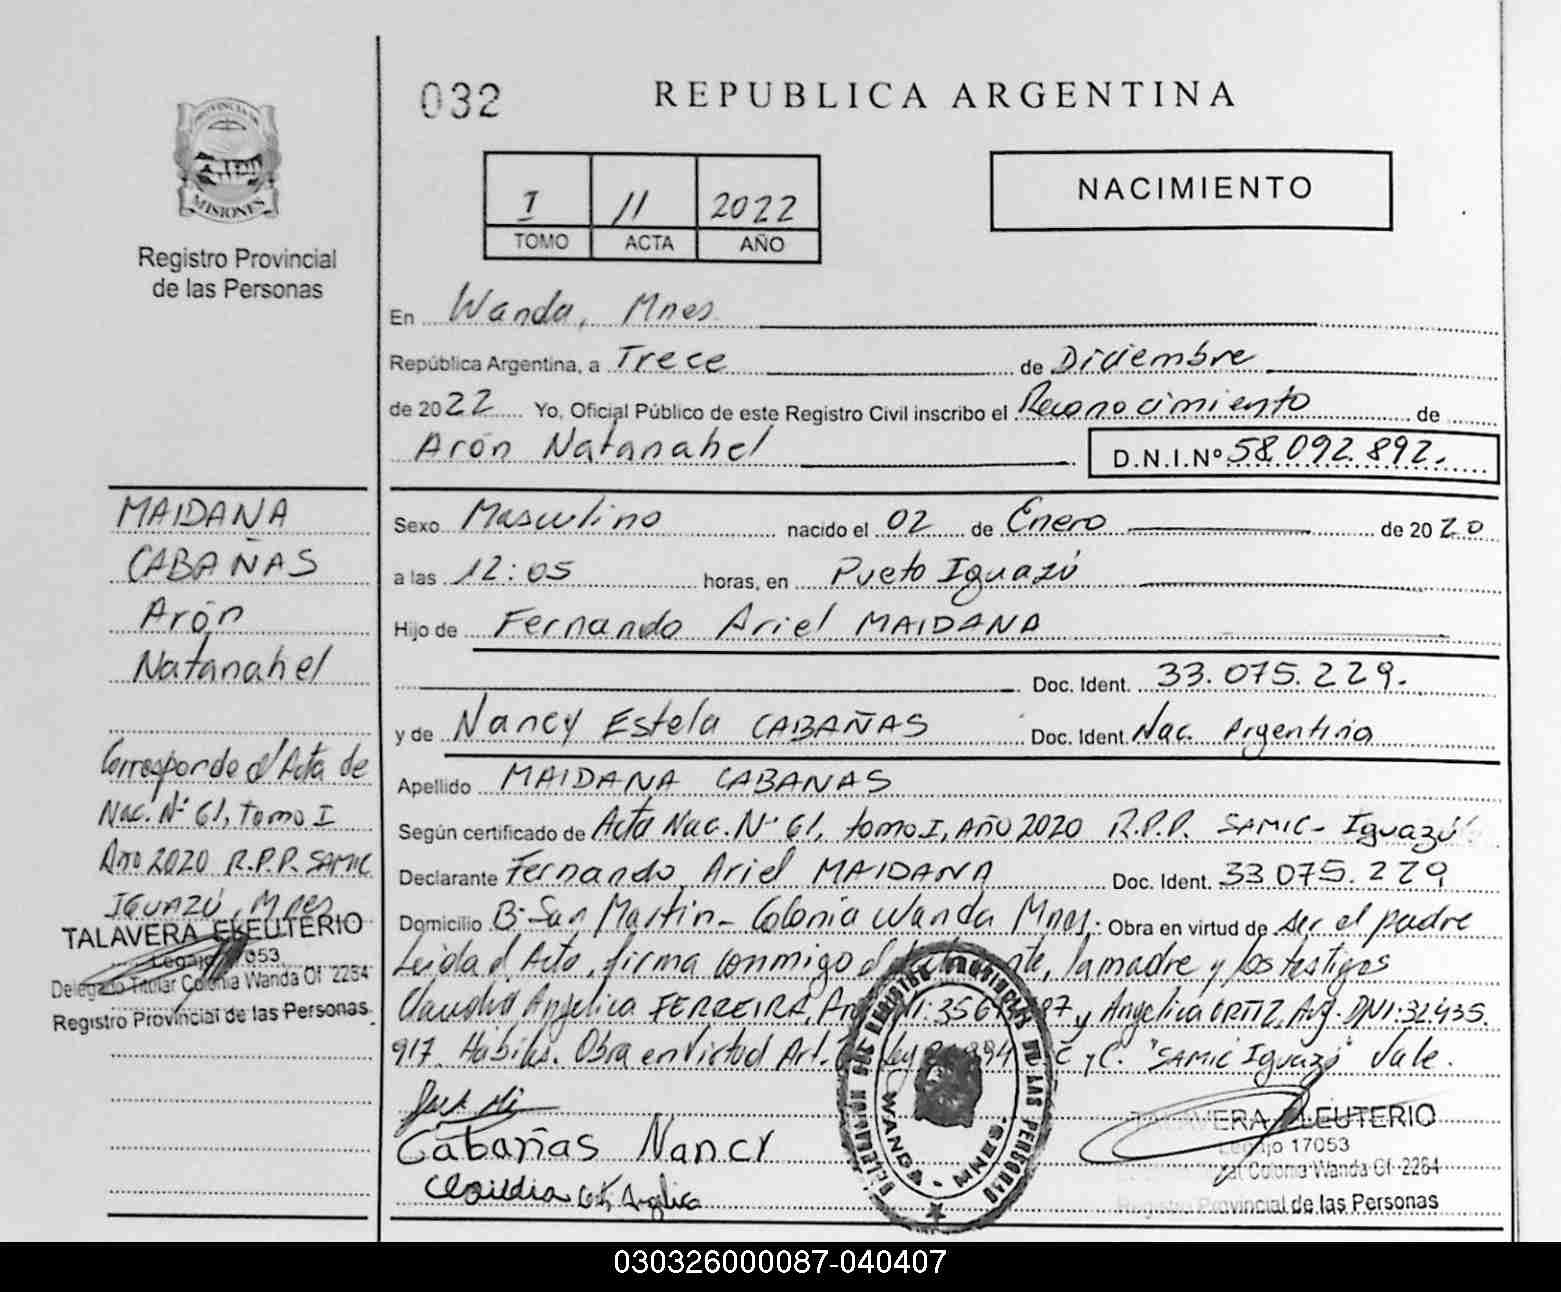 032
REPUBLICA ARGENTINA
PROVINCIA DE
MISIONES
Registro Provincial
de las Personas
I 11 2022
TOMO ACTA AÑO
NACIMIENTO
En Wanda, Mnes
República Argentina, a Trece de Diciembre
de 2022 Yo, Oficial Público de este Registro Civil inscribo el Reconocimiento de
Arón Natanahel D.N.I.Nº 58.092.892.
MAIDANA
CABAÑAS
Arón
Natanahel
Corresponde al Acta de
Nac. Nº 61, tomo I
Año 2020 R.P.P. SAMIC
IGUAZÚ, Mnes
TALAVERA ELEUTERIO
Legajo 17053
Delegado Titular Colonia Wanda Of 2264
Registro Provincial de las Personas
Sexo Masculino nacido el 02 de Enero de 2020
a las 12:05 horas, en Pueto Iguazú
Hijo de Fernando Ariel MAIDANA
Doc. Ident. 33.075.229.
y de Nancy Estela CABAÑAS Doc. Ident. Nac. Argentina
Apellido MAIDANA CABANAS
Según certificado de Acta Nac. Nº 61, tomo I, AÑO 2020 R.P.P. SAMIC - Iguazú
Declarante Fernando Ariel MAIDANA Doc. Ident. 33 075. 229
Domicilio Bº San Martin - Colonia Wanda Mnes. Obra en virtud de ser el padre
Leida el Acta, firma conmigo el la madre y los testigos
Claudia Angelica FERREIRA, y Angelica ORTIZ, Arg. DNI: 32435.
917. Habiles. Obra en Virtud Art. Ley C y C. "SAMIC Iguazú" Vale.
Cabañas Nancy
Claudia
DELEGACION DEL REGISTRO PROVINCIAL DE LAS PERSONAS
WANDA - MNES.
TALAVERA ELEUTERIO
Legajo 17053
Colonia Wanda Of 2264
Registro Provincial de las Personas
030326000087-040407